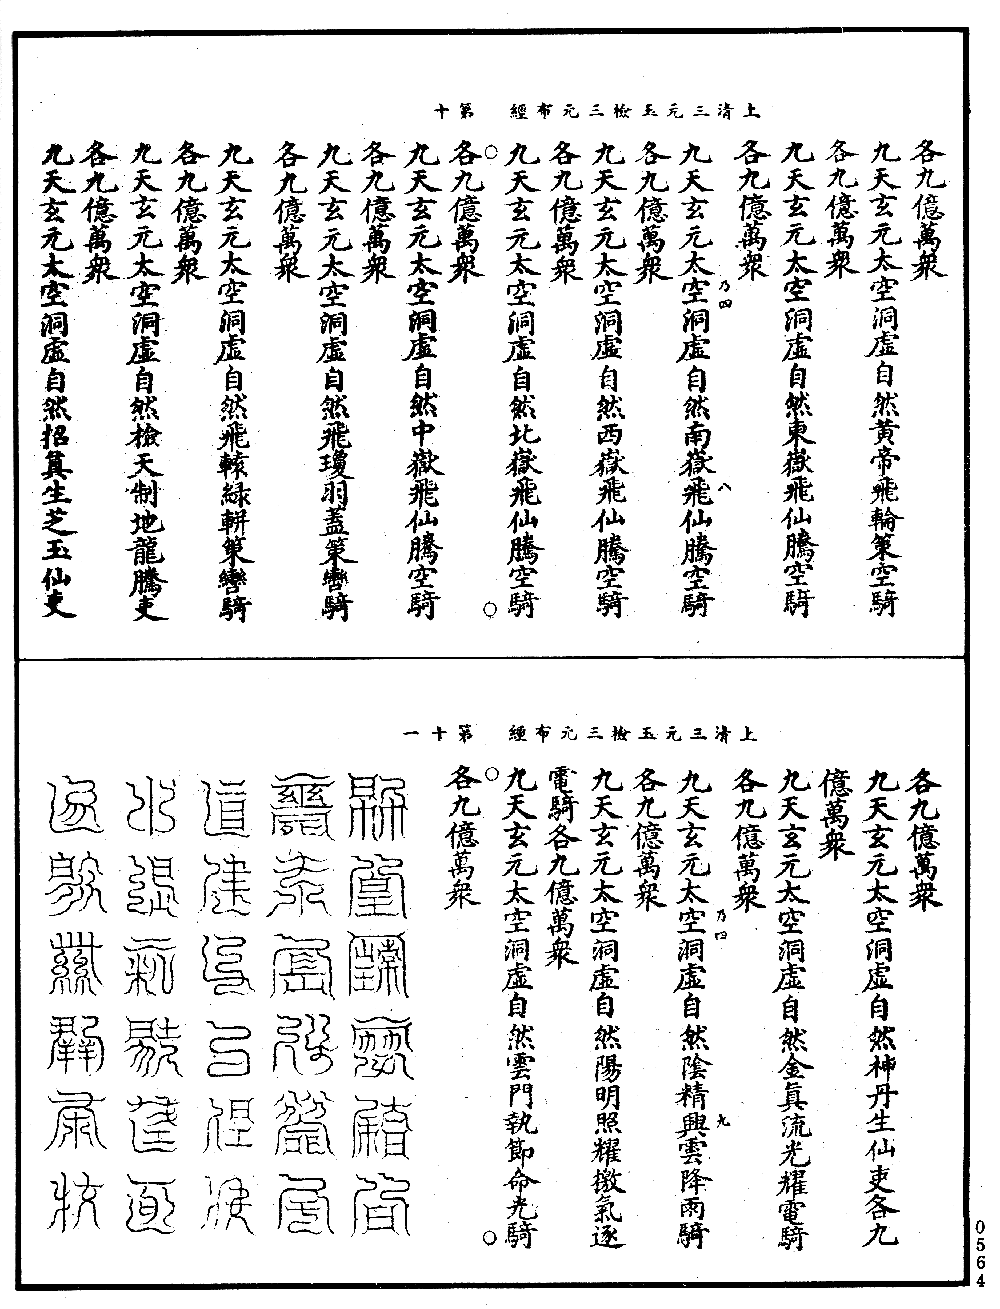 上清三元玉檢三元布經　第十
各九億萬衆
九天玄元太空洞虛自然黃帝飛輪策空騎
各九億萬衆
九天玄元太空洞虛自然東嶽飛仙騰空騎
各九億萬衆
九天玄元太空洞虛自然南嶽飛仙騰空騎
各九億萬衆
九天玄元太空洞虛自然西嶽飛仙騰空騎
各九億萬衆
九天玄元太空洞虛自然北嶽飛仙騰空騎
各九億萬衆
九天玄元太空洞虛自然中嶽飛仙騰空騎
各九億萬衆
九天玄元太空洞虛自然飛瓊羽蓋策轡騎
各九億萬衆
九天玄元太空洞虛自然飛轅綠軿策轡騎
各九億萬衆
九天玄元太空洞虛自然檢天制地龍騰吏
各九億萬衆
九天玄元太空洞虛自然招真生芝玉仙吏
乃四
八
上清三元玉檢三元布經　第十一
各九億萬衆
九天玄元太空洞虛自然神丹生仙吏各九
億萬衆
九天玄元太空洞虛自然金真流光耀電騎
各九億萬衆
九天玄元太空洞虛自然陰精興雲降雨騎
各九億萬衆
九天玄元太空洞虛自然陽明照耀檄氣逐
電騎各九億萬衆
九天玄元太空洞虛自然雲門執節命光騎
各九億萬衆
乃四
九
0564